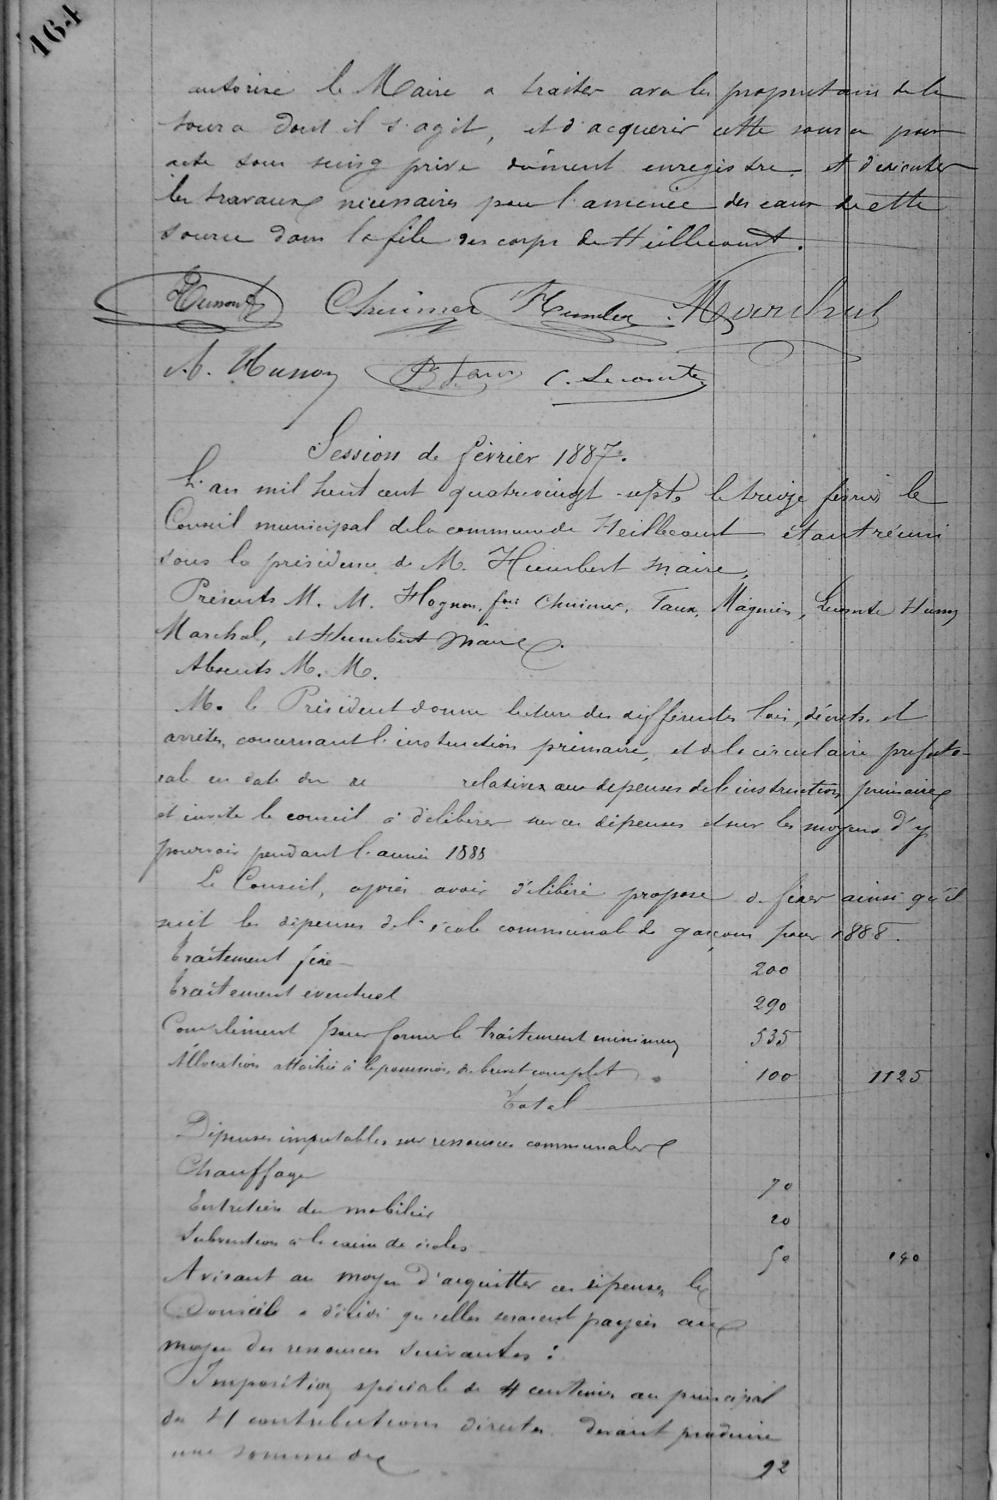 164
autorise le Maire a traiter avec les propriétaires de la
source dont il s'agit, et d'acquérir cette source par
acte sous seing privé dûment enregistré et d'exécuter
les travaux nécessaires pour l'amenée des eaux de cette
source dans la file des corps de Heillecourt.
Husson Chuimer Humbert Marchal
A. Husson Taux C. Lecomte
Session de février 1887.
L'an mil huit cent quatrevingt-sept le treize février le
Conseil municipal de la commune de Heillecourt étant réuni
sous la présidence de M. Humbert maire,
Présents M. M. Hognon, Chuimer, Taux, Magnien, Lecomte Husson
Marchal, et Humbert Maire.
Absents M. M.
M. le Président donne lecture des différentes lois, décrets et
arrêtés, concernant l'instruction primaire, et de la circulaire préfecto-
rale en date du relatives aux dépenses de l'instruction primaire
et invite le conseil à délibérer sur ces dépenses et sur les moyens d'y
pourvoir pendant l'année 1888
Le Conseil, après avoir délibéré propose de fixer ainsi qu'il
suit les dépenses de l'école communale de garçons pour 1888.
Traitement fixe 200
Traitement éventuel 290
Complément pour former le traitement minimum 535
Allocation attachée à la possession du brevet complet 100 1125
Total
Dépenses imputables sur ressources communales
Chauffage 70
Entretien du mobilier 20
Subvention à la caisse des écoles 50 140
Avisant au moyen d'acquitter ces dépenses, le
Conseil a décidé qu'elles seraient payées au
moyen des ressources suivantes :
Imposition spéciale de 4 centimes au principal
des 4 contributions directes devant produire
une somme de 92